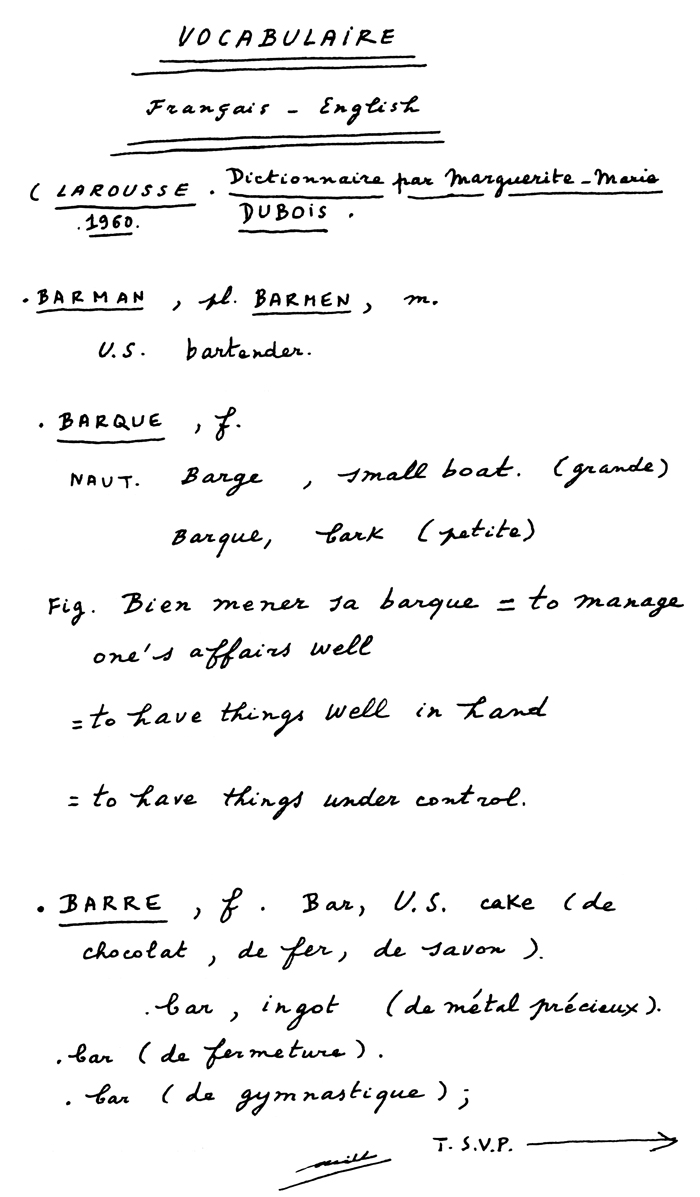 VOCABULAIRE
Français - English
( LAROUSSE . Dictionnaire par Marguerite-Marie
. 1960. DUBOIS .
. BARMAN , pl. BARMEN , m.
U.S. bartender.
. BARQUE , f.
NAUT. Barge , small boat. (grande)
Barque, bark (petite)
Fig. Bien mener sa barque = to manage
one's affairs well
= to have things well in hand
= to have things under control.
. BARRE , f . Bar, U.S. cake (de
chocolat , de fer, de savon ).
. bar , ingot (de métal précieux).
. bar (de fermeture).
. bar (de gymnastique) ;
T. S.V.P.